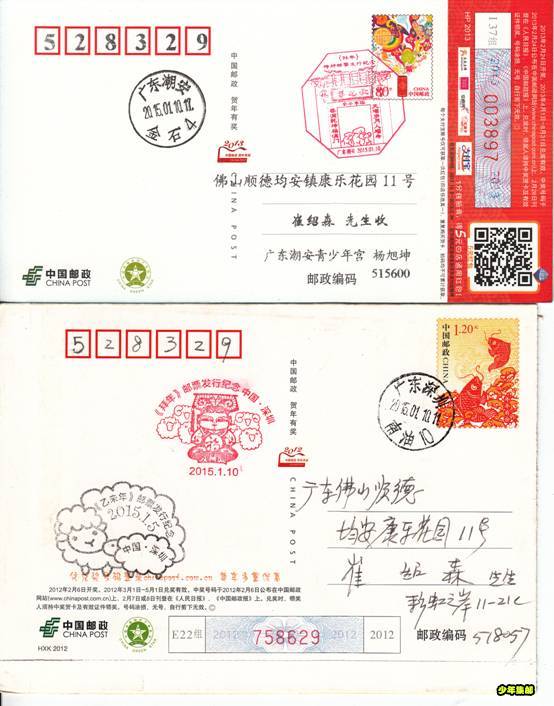 528329
广东潮安
2015.01.10.17
(拜年)
特种邮票发行纪念
广东潮安 2015.1.10
80分
CHINA
中国邮政
中国邮政 贺年有奖
2013
CHINA POST
佛山顺德均安镇康乐花园11号
崔绍森 先生收
广东潮安青少年宫 杨旭坤
邮政编码 515600
中国邮政
CHINA POST
HP 2013
137组
003897
2013
支付宝
528329
《拜年》邮票发行纪念 中国·深圳
2015.1.10
《乙未年》邮票发行纪念
2015.1.5
中国·深圳
中国邮政 贺年有奖
2012
CHINA POST
1.20元
中国邮政 CHINA
广东深圳
2015.01.10.11
南油10
广东佛山顺德
均安康乐花园11号
崔绍森 先生
彩虹之岸11-21C
邮政编码 518057
2012年2月6日开奖，2012年3月1日~5月1日兑奖有效，中奖号码于2012年2月6日公布在中国邮政
网站(www.chinapost.com.cn)上，2月7日或8日刊登在《人民日报》、《中国邮政报》上，兑奖时，领奖
人须持中奖贺卡及有效证件领奖。号码涂损、无号，自行剪下无效。
中国邮政
CHINA POST
HXK 2012
E22组
2012
758629
2012
2012
少年集邮